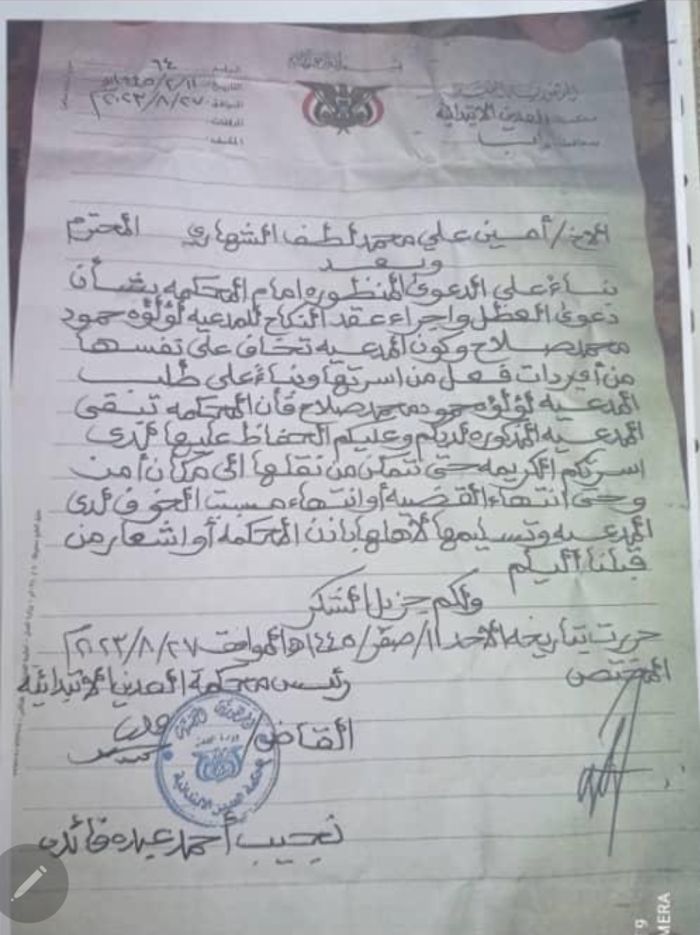 الرقم: ٦٤
التاريخ: ١١/٢/١٤٤٥هـ
الموافق: ٢٧/٨/٢٠٢٣م
المرفقات:
الجمهورية اليمنية
محكمة العدين الابتدائية
محافظة إب
الاخ/ أمين علي محمد لطف الشهاري المحترم
وبعد
بناءً على الدعوى المنظوره امام المحكمه بشأن
دعوى العظل واجراء عقد النكاح للمدعيه لؤلؤه حمود
محمد صلاح وكون المدعيه تخاف على نفسها
من أي ردات فعل من اسرتها وبناءً على طلب
المدعيه لؤلؤه حمود محمد صلاح فأن المحكمه تبقى
المدعيه المذكوره لديكم وعليكم الحفاظ عليها لدى
اسرتكم الكريمه حتى تتمكن من نقلها الى مكان أمن
وحتى انتهاء القضيه أو انتهاء مسبب الخوف لدى
المدعيه وتسليمها لأهلها بإذن المحكمة أو اشعار من
قبلنا اليكم
ولكم جزيل الشكر
حررت بتاريخه الأحد ١١/صفر/١٤٤٥هـ الموافق ٢٧/٨/٢٠٢٣م
المختص
رئيس محكمة العدين الابتدائيه
القاضي/
نجيب أحمد عبده قائد
MERA